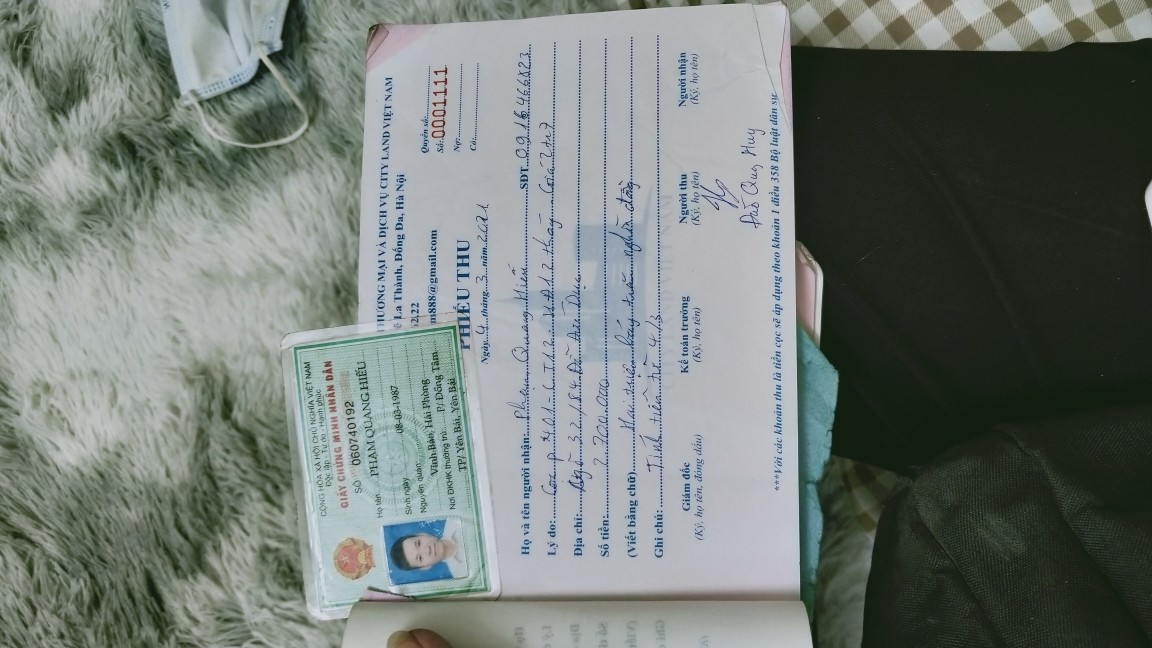 CỘNG HÒA XÃ HỘI CHỦ NGHĨA VIỆT NAM
Độc lập - Tự do - Hạnh phúc
GIẤY CHỨNG MINH NHÂN DÂN
SỐ 060740192
Họ tên: PHẠM QUANG HIẾU
Sinh ngày: 08-03-1987
Nguyên quán: Vĩnh Bảo, Hải Phòng
Nơi ĐKHK thường trú: P/ Đồng Tâm,
TP/ Yên Bái, Yên Bái
THƯƠNG MẠI VÀ DỊCH VỤ CITY LAND VIỆT NAM
La Thành, Đống Đa, Hà Nội
62.22
m888@gmail.com
PHIẾU THU
Ngày 4 tháng 3 năm 2021
Quyển số:
Số: 0001111
Nợ:
Có:
Họ và tên người nhận: Phạm Quang Hiếu SĐT: 0916466823
Lý do: Cọc P401
Địa chỉ: Ngõ 32/84 Đỗ Đức Dục
Số tiền: 2.700.000
(Viết bằng chữ) Hai triệu bảy trăm nghìn đồng
Ghi chú: Tính tiền từ 4/3
Giám đốc
(Ký, họ tên, đóng dấu)
Kế toán trưởng
(Ký, họ tên)
Người thu
(Ký, họ tên)
Người nhận
(Ký, họ tên)
Đào Quang Huy
***Với các khoản thu là tiền cọc sẽ áp dụng theo khoản 1 điều 358 Bộ luật dân sự